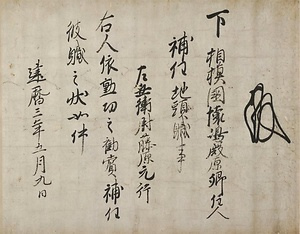 下 相模國懐嶋殿原郷住人
補任地頭職事
左兵衛尉藤原元行
右人依勲功之勧賞補任
彼職之状如件
建暦三年五月九日